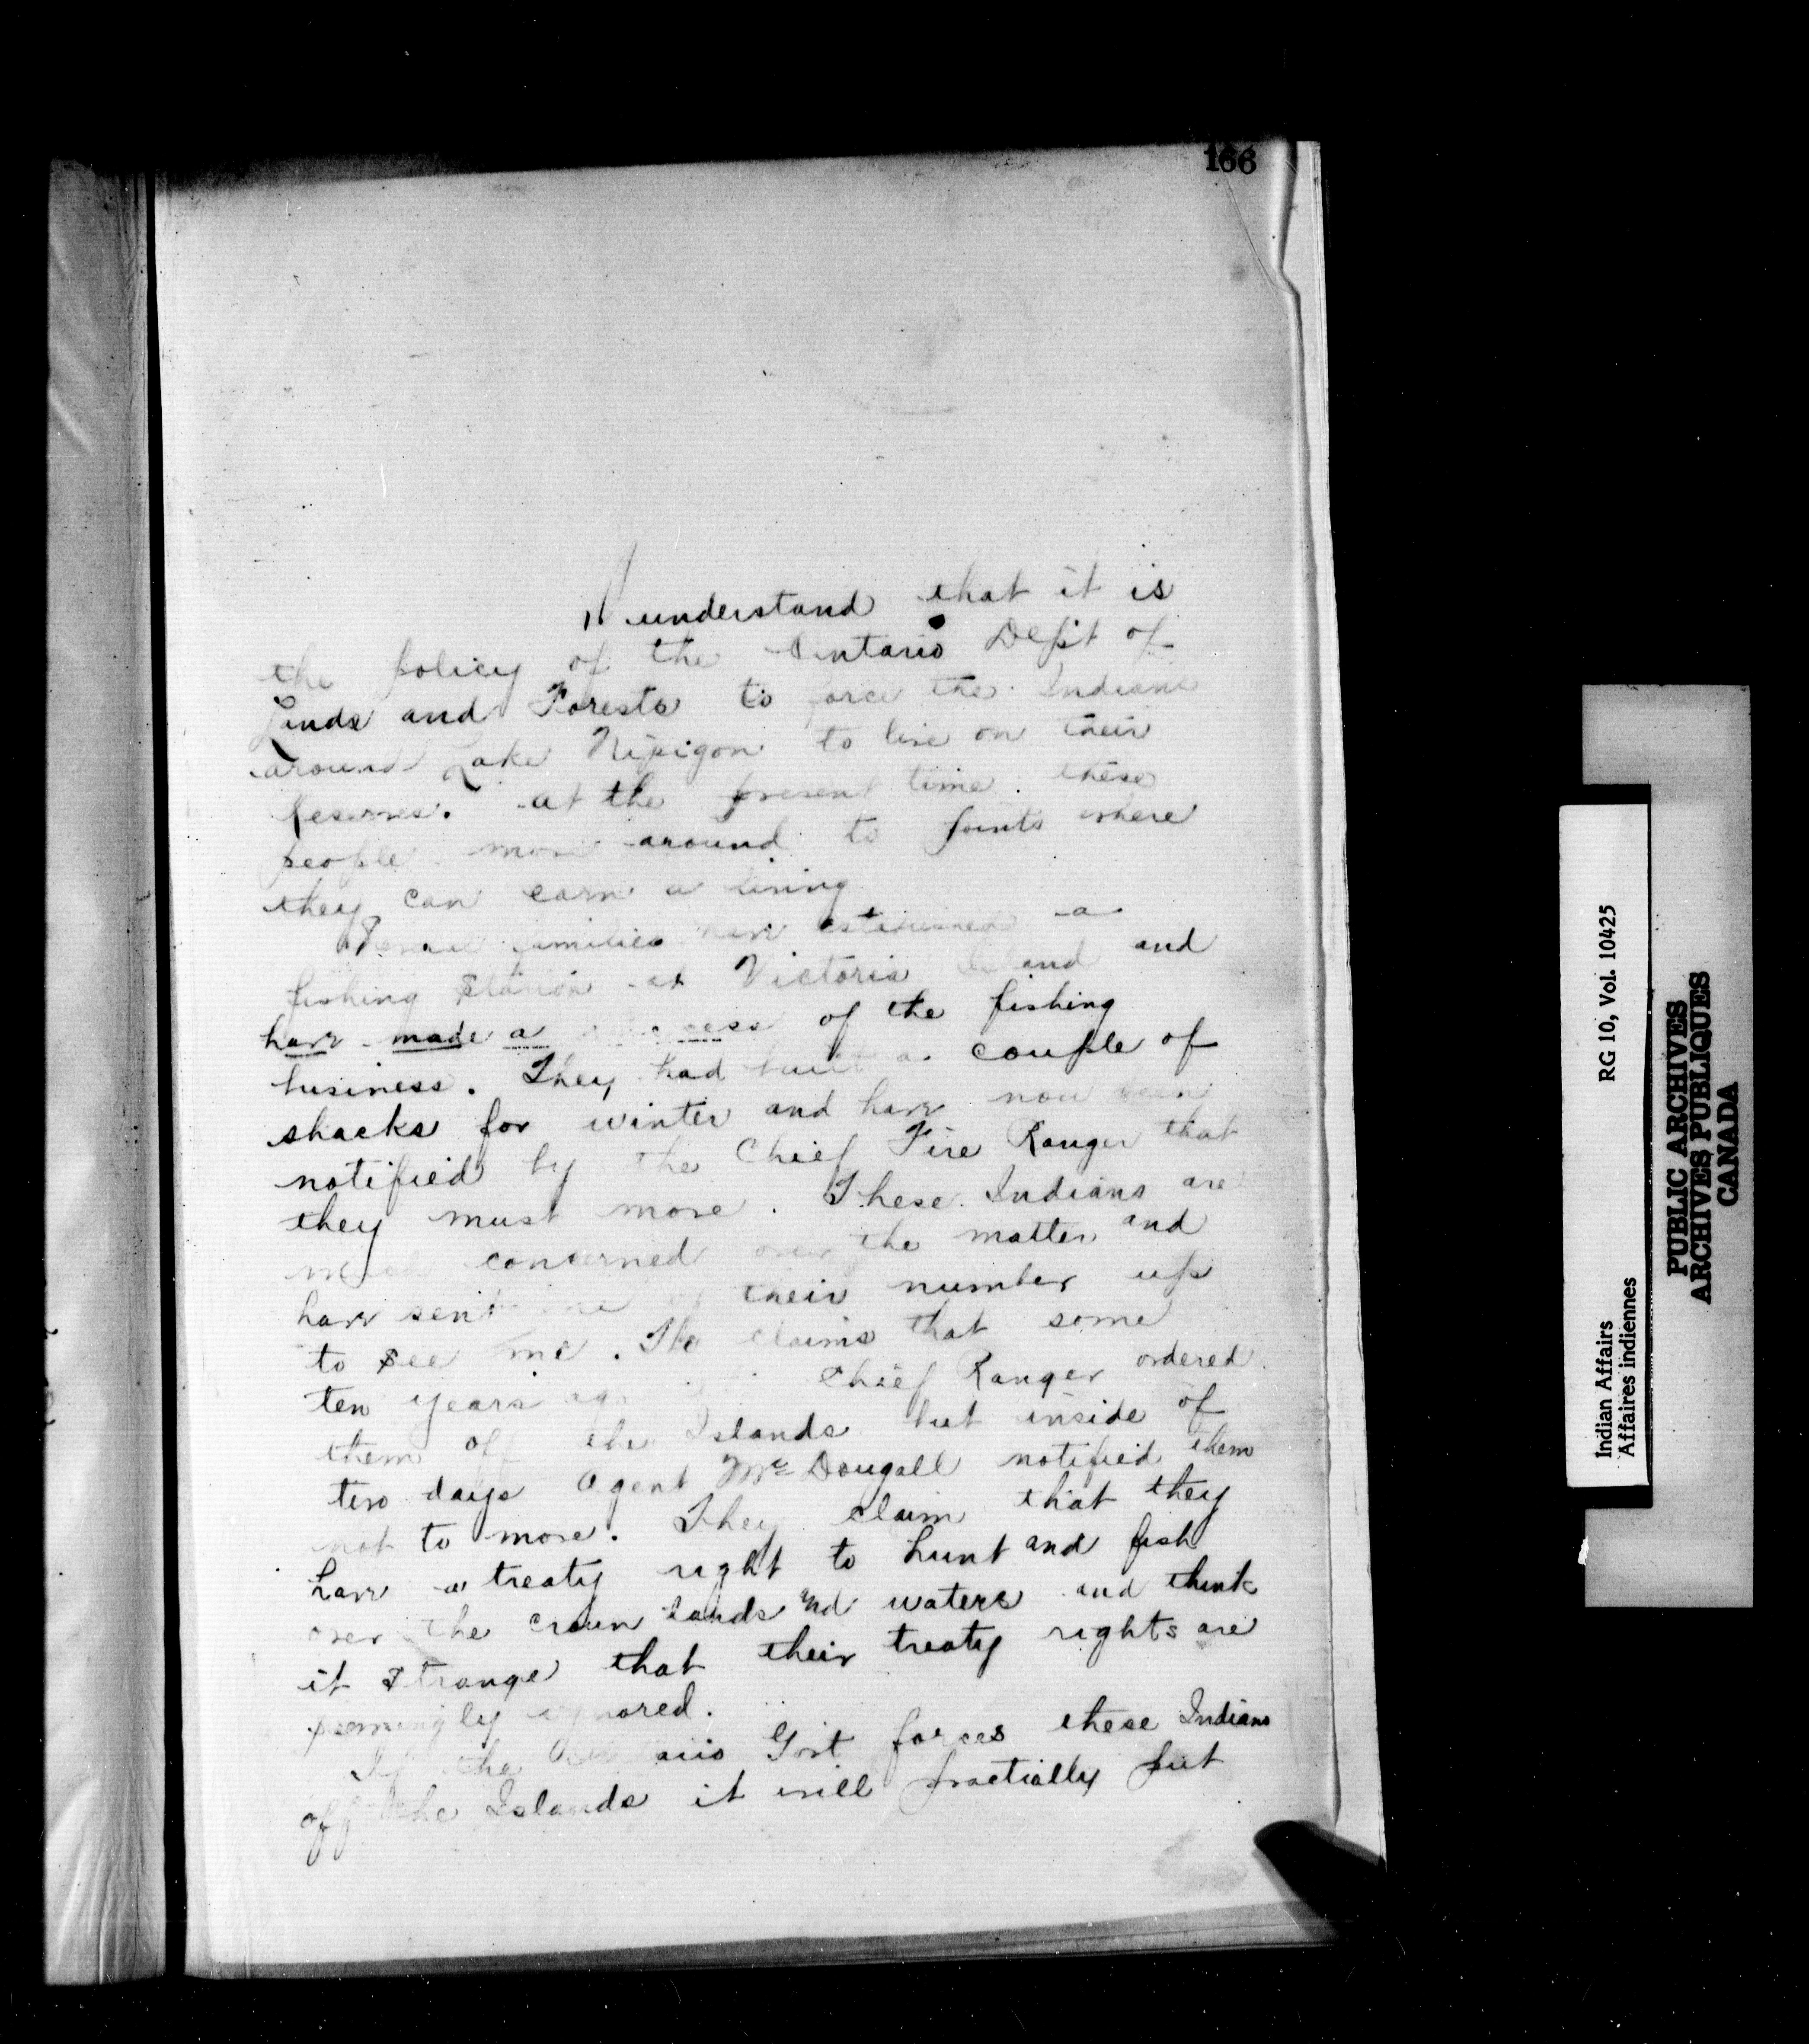 166
I understand that it is
the policy of the Ontario Dep't of
Lands and Forests to force the Indians
around Lake Nipigon to live on their
reserves. at the present time these
people move around to points where
they can earn a living
Several families have established a
fishing station at Victoria Island and
have made a success of the fishing
business. They had built a couple of
shacks for winter and have now been
notified by the Chief Fire Ranger that
they must move. These Indians are
much concerned over the matter and
have sent one of their number up
to see me. He claims that some
ten years ago Chief Ranger ordered
them off the Islands but inside of
two days agent McDougall notified them
not to move. They claim that they
have a treaty right to hunt and fish
over the crown lands and waters and think
it strange that their treaty rights are
seemingly ignored.
If the Ontario Govt forces these Indians
off the Islands it will practially put
Indian Affairs RG 10, Vol. 10425
Affaires indiennes
PUBLIC ARCHIVES
ARCHIVES PUBLIQUES
CANADA